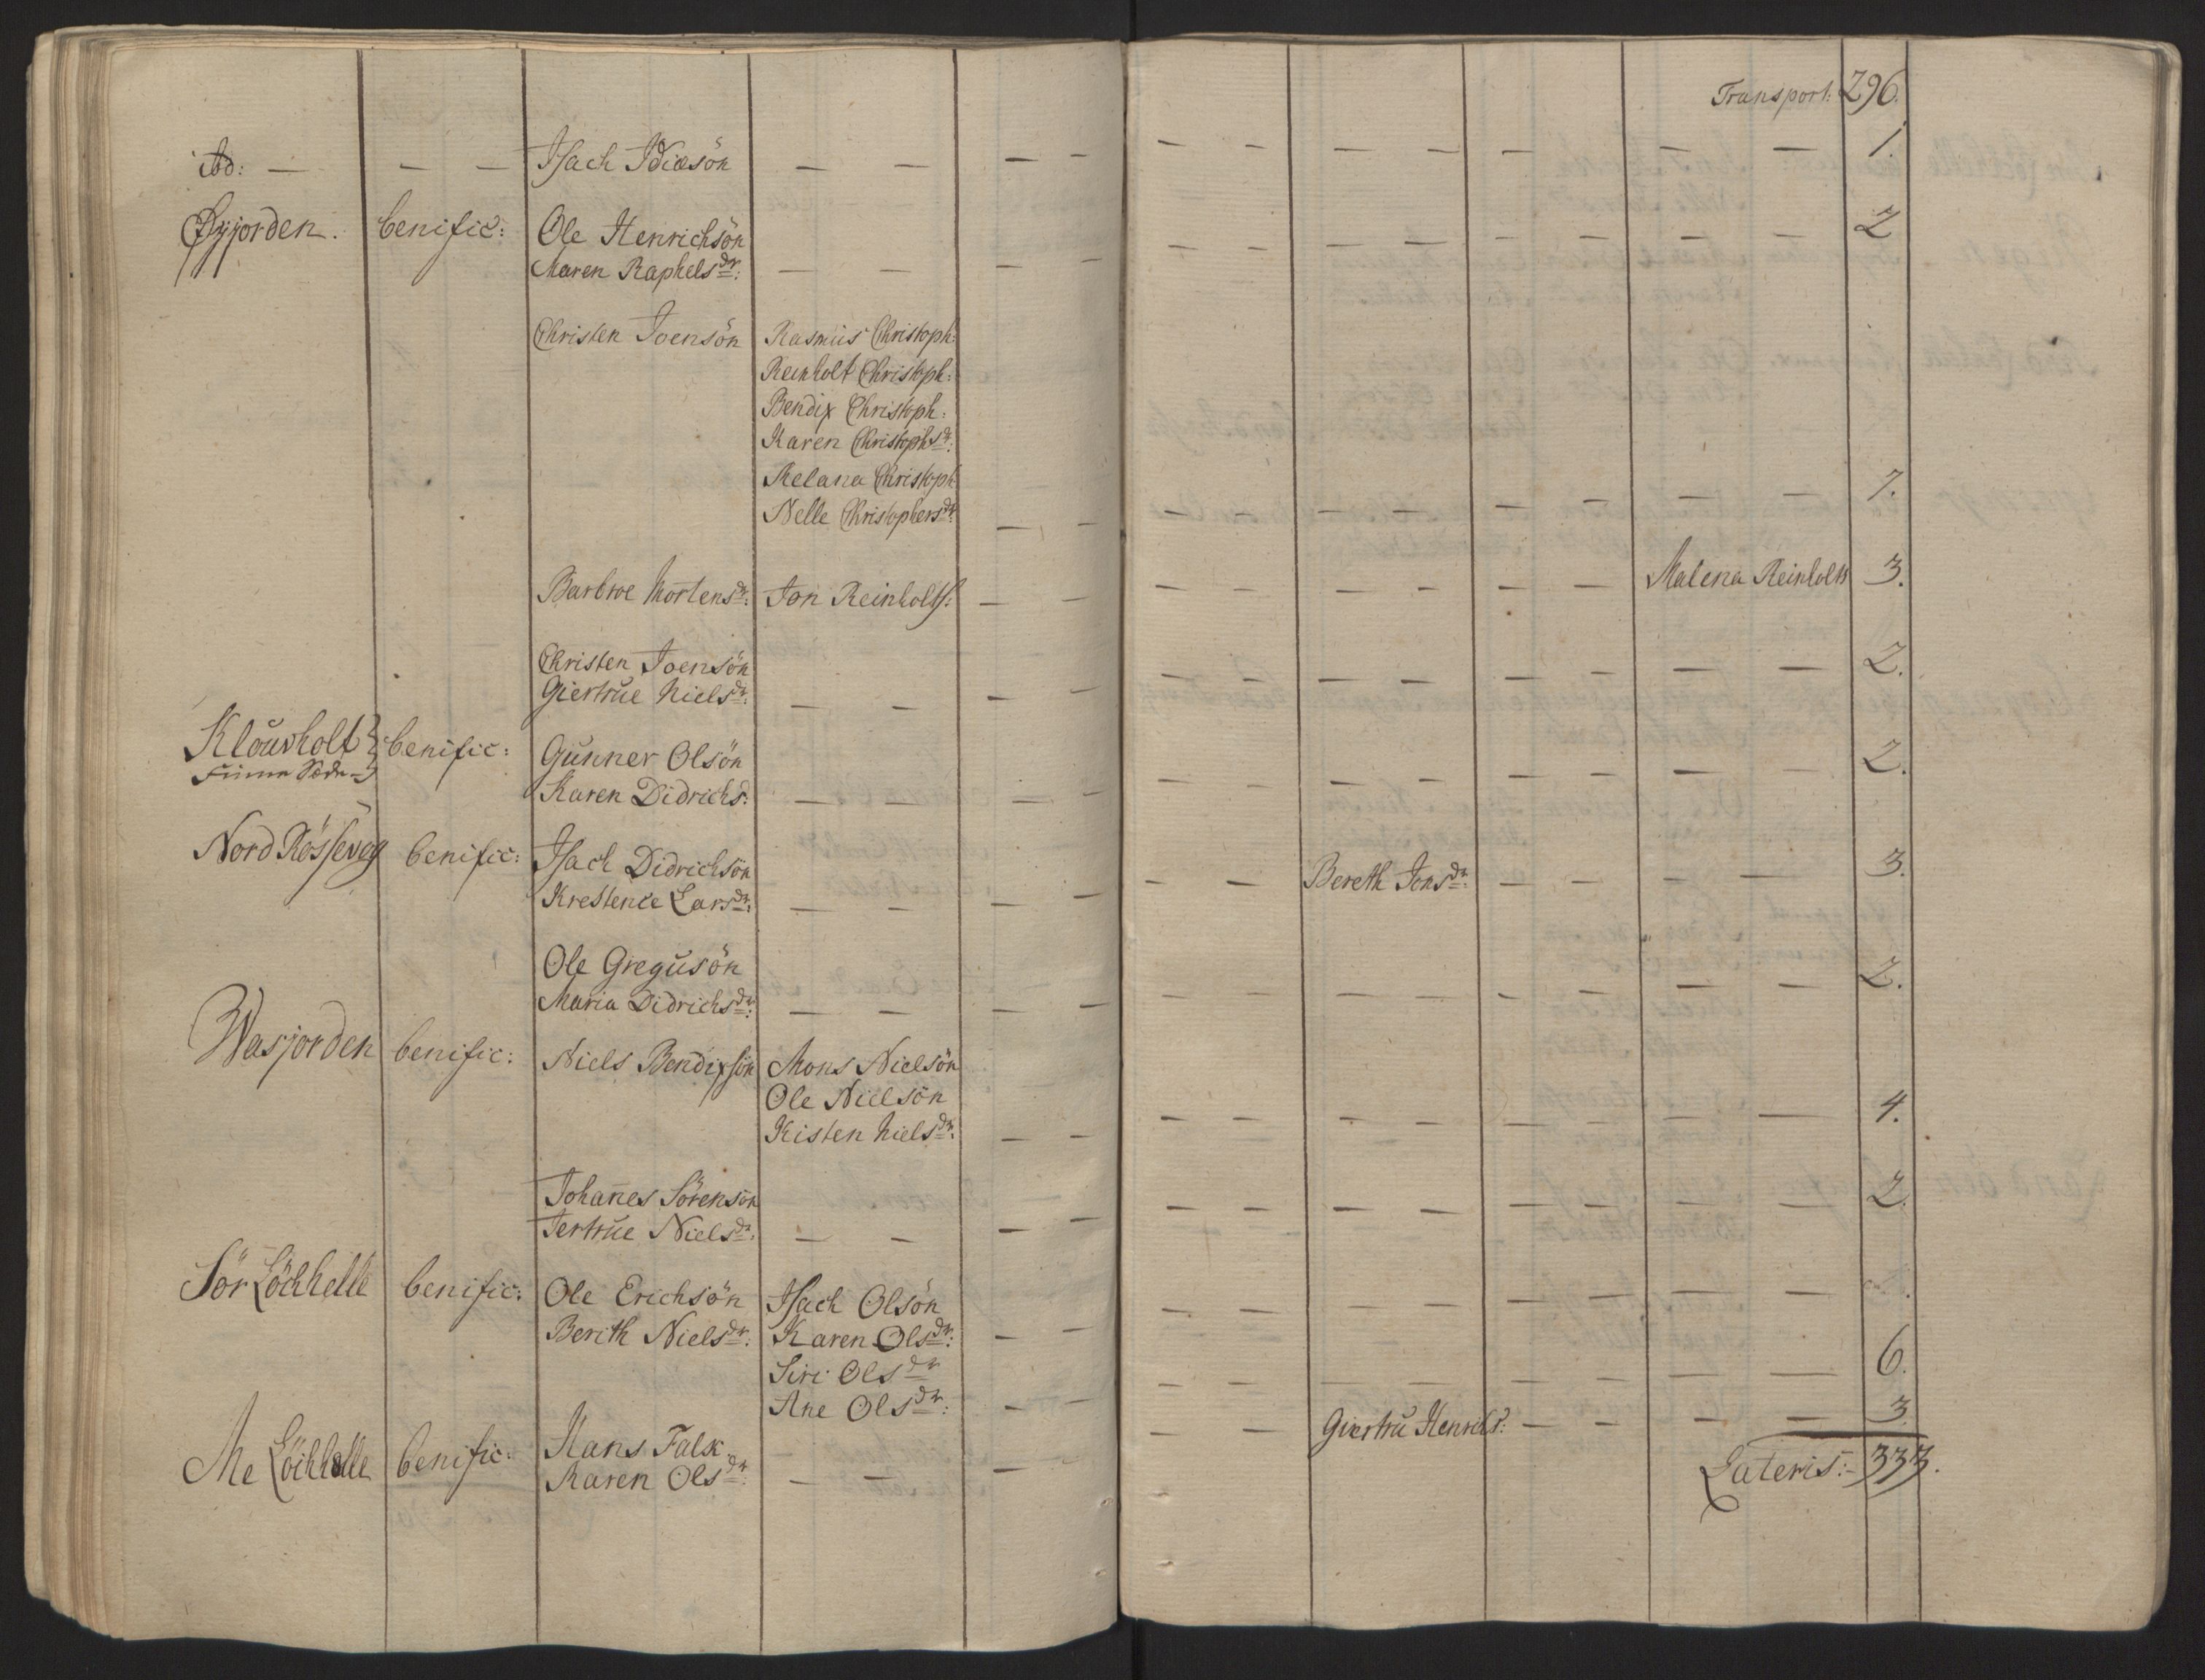 Transport: 296.
ibd: — — — Isach Idiesön — — — — — — — — — — — — 1.
Øyjorden. benific: Ole Henrichsön
Maren Raphelsdr: — — — — — — — — — — — — 2
Christen Joensön Rasmus Christoph:
Reinholt Christoph:
Bendix Christoph:
Karen Christophsdr:
Melana Christoph:
Nelle Christophersdr: — — — — — — — — — — 7.
Barbroe Mortensdr: Jon Reinholts: — — — — — — — — Malena Reinholts 3.
Christen Joensön
Giertrue Nielsdr: — — — — — — — — — — — — 2.
Klouvholt } benific: Gunner Olsön
Karen Didrichsd: — — — — — — — — — — — — 2.
Nord Rössevog benific: Isach Didrichsön
Krestence Larsdr: — — — — — — Bereth Jonsdr: — — — — 3.
Ole Gregusön
Maria Didrichsdr: — — — — — — — — — — — — 2.
Wasjorden benific: Niels Bendixsön Mons Nielsön
Ole Nielsön
Kisten Nielsdr: — — — — — — — — — — 4.
Johannes Sörensön
Jertrue Nielsdr: — — — — — — — — — — — — 2.
Sör Löchhelle benific: Ole Erichsön Isach Olsön
Berith Nielsdr: Karen Olsdr: — —
Siri Olsdr
Ane Olsdr: — — — — — — — — — — 6.
Me Löchhelle benific: Hans Falk
Karen Olsdr: — — — — — — Giertru Henrichs: — — — — 3.
Lateris: 333.